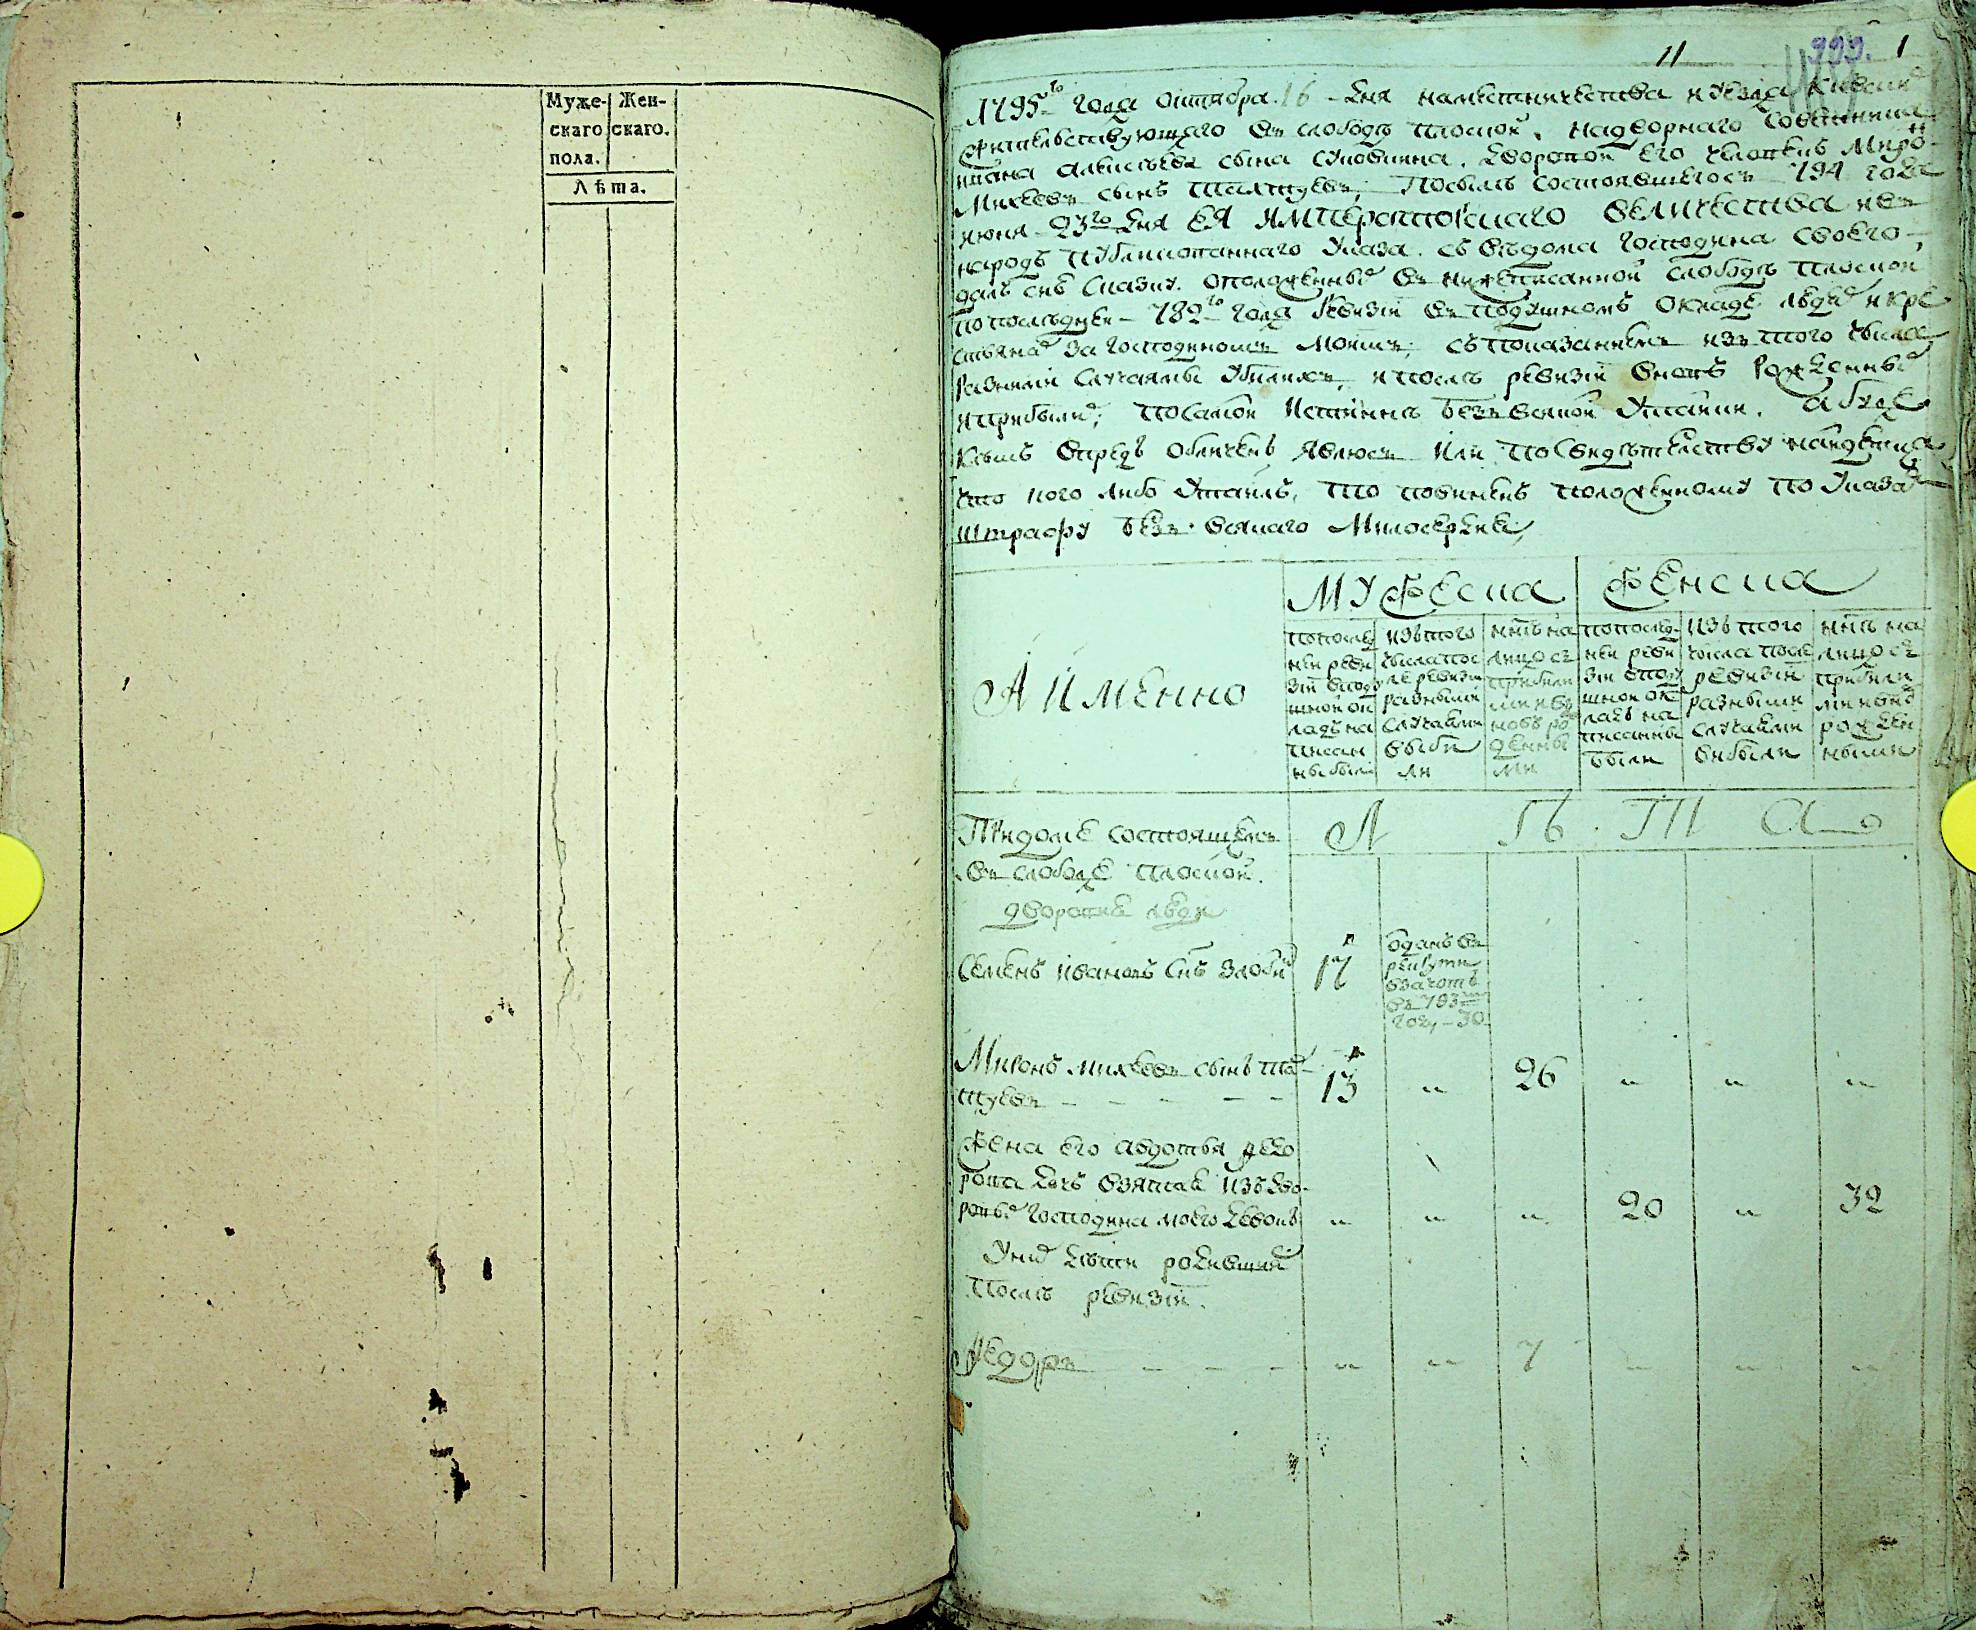 Муже- Жен-
скаго скаго.
пола.
Лѣта.
11 999. 1
1795го года октября 16 дня наместничества и уезда Киевск
жителствующаго въ слободѣ плоской, надворнаго советника
сына дворовой его человекъ Миро
Михеевъ сынъ по силѣ состоявшегося 794 года
июня 23го дня ЕЯ ИМПЕРАТОРСКАГО ВЕЛИЧЕСТВА и въ
народъ публикованнаго указа, съ вѣдома господина своего,
далъ сию сказку, о положенныхъ въ нижеписанной слободѣ плоской
по последней 782го года ревизіи въ подушномъ окладе людей и кре
стьянахъ за господиномъ моимъ, съ показаниемъ изъ того числа
разными случаями убылихъ, и после ревизіи вновь рожденныхъ
и прибылихъ, по самой истинне безъ всякой утайки. а буде
кѣмъ впредь обличенъ явлюсь или по свидѣтелству найдется
что кого либо утаилъ, то повиненъ положенному по указамъ
штрафу безъ всякаго милосердия,
А ИМЕННО
МУЖЕСКА ЖЕНСКА
по послѣд
ней реви
зіи в поду
шной ок
ладъ на
писан
ны были
изъ того
числа пос
ле ревизіи
разными
случаями
выбы
ли
ннѣ на
лицо съ
прибыли
ми и въ
новь ро
жденны
ми
по послѣд
ней реви
зіи в поду
шной ок
ладъ на
писанны
были
изъ того
числа после
ревизіи
разными
случаями
выбыли
ннѣ на
лицо съ
прибыли
ми и вновь
рожден
ными
При доме состоящемъ Л Ѣ Т А
въ слободе плоской.
дворовие люди
Семенъ Ивановъ снъ 17 отданъ въ
рекруты
в зачотъ
въ 793м
году 30
Миронъ Михеевъ сынъ 13 " 26 " " "
Жена его авдотья Федо
рова дочь взятая изъ дво-
ровыхъ господина моего " " " 20 " 32
У них дѣти родившия
после ревизіи.
Федоръ " " 7 " " "